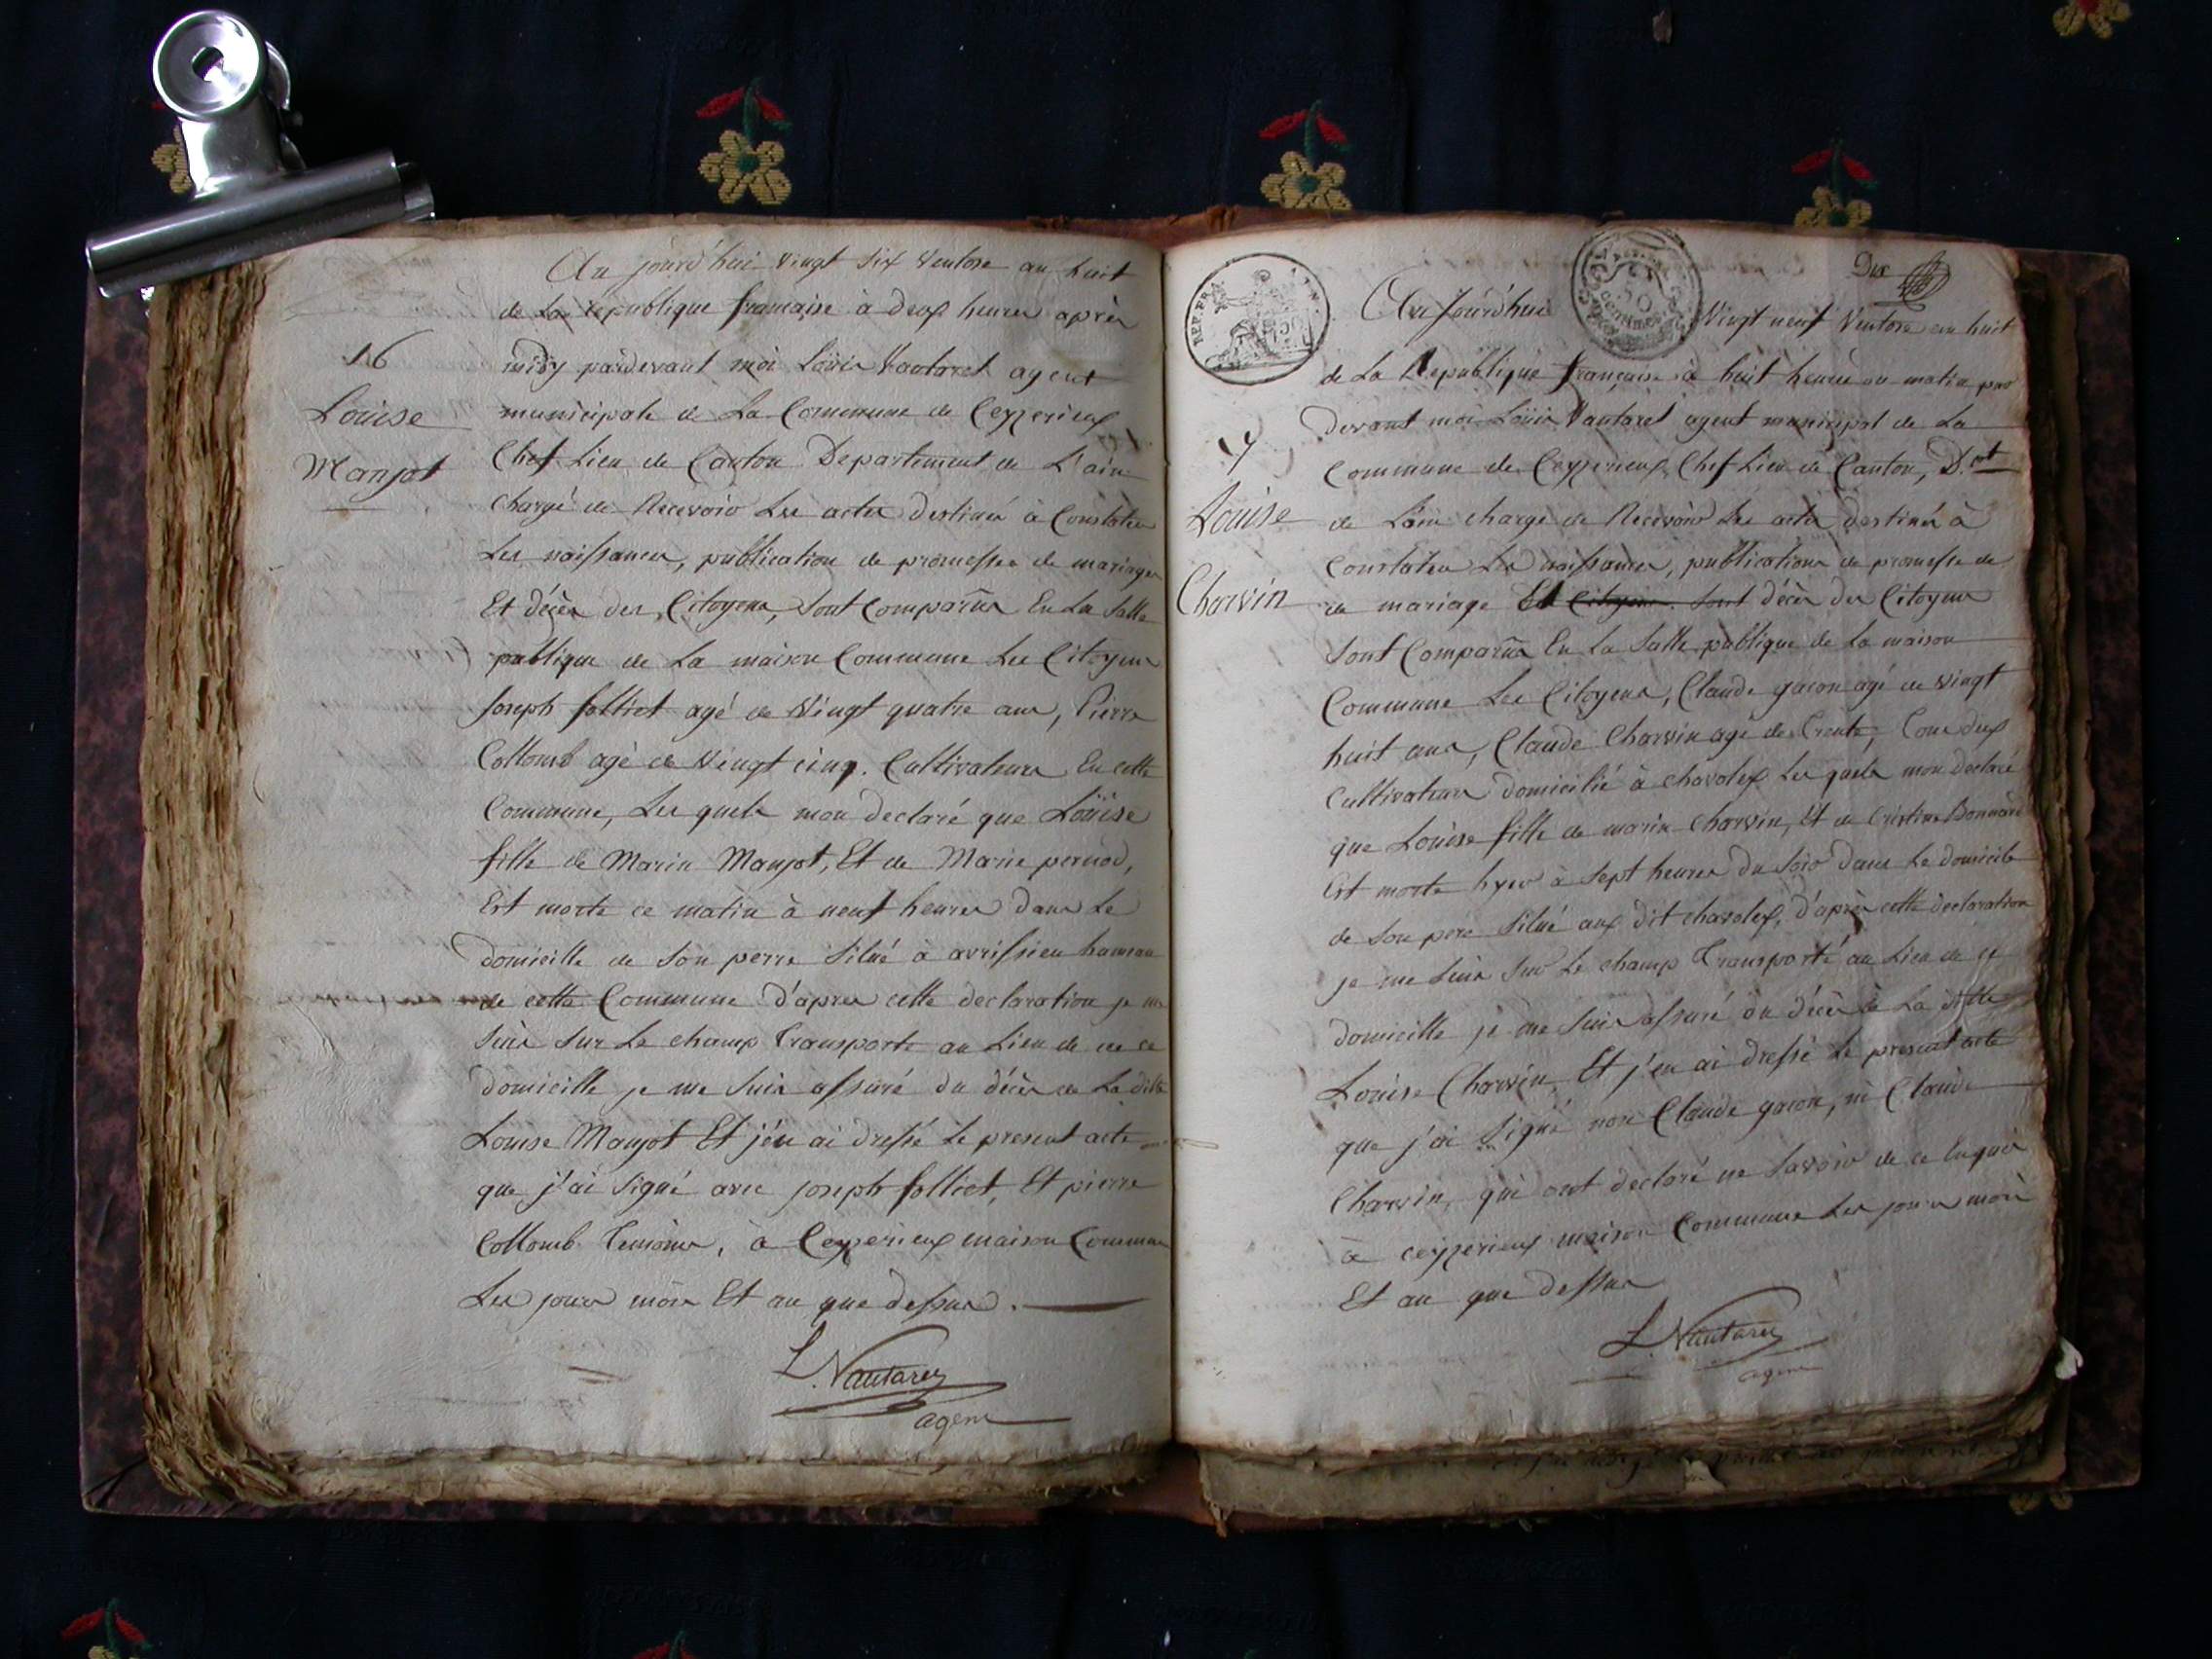 Au jourd'hui vingt six ventose an huit
de La republique française à deux heures après
midy pardevant moi Loüis Vautaret agent
municipale de La Commune de Ceyzerieux
Chef Lieu de Canton Departement de L'ain
chargé de Recevoir Les actes destinés à Constater
Les naissances, publication de promesses de mariages
Et décès des Citoyens, sont Comparus En La Salle
publique de La maison Commune Les Citoyens
joseph folliet agé de Vingt quatre ans, Pierre
Collomb agé de Vingt cinq. Cultivateurs En cette
Commune, Les quels mon declaré que Loüise
fille de Marin Manjot, Et de Marie pernod,
Est morte ce matin à neuf heures dans Le
domicille de Son perre Situé à avrissieu hameau
de cette Commune d'apres cette declaration je me
Suis Sur Le champ Transporté au Lieu de ce
domicille je me Suis assuré du décès de La ditte
Louise Manjot Et j'en ai dressé Le present acte
que j'ai Signé avec joseph folliet, Et pierre
Collomb Temoins, à Ceyzerieux maison Commune
Les jours mois Et an que dessus.
L. Vautarey
agent
16
Louise
Manjot
Dix
REP. FRA
50
centimes
Au Jourd'hui Vingt neuf Ventose an huit
de La Republique française à huit heures du matin par
devant moi Loüis Vautaret agent municipal de La
Commune de Ceyzerieux Chef Lieu de Canton, D.ent
de Lain chargé de Recevoir Les actes destinés à
Constater Les naissances, publications de promesse de
de mariage Et Citoyens sont décès des Citoyens
sont Comparus En La Salle publique de La maison
Commune Les Citoyens, Claude gacon agé de vingt
huit ans, Claude Charvin agé de Trente, Tous deux
Cultivateurs domicilié à chavolex Les quels mon declaré
que Louise fille de marin Charvin, Et de Cristine Bonnard
Est morte hyer à Sept heures du Soir dans Le domicile
de Son pere Situé aux dit chavolex, d'après cette declaration
je me Suis Sur Le champ Transporté au Lieu de ce
domicille je me Suis assuré du décès de La ditte
Louise Charvin Et j'en ai dressé Le present acte
que j'ai Signé non Claude gacon, ni Claude
Charvin, qui ont declaré ne Savoir de ce Enquis
à ceyzerieux maison Commune Les jours mois
Et an que dessus
L. Vautarey
agent
7
Louise
Charvin